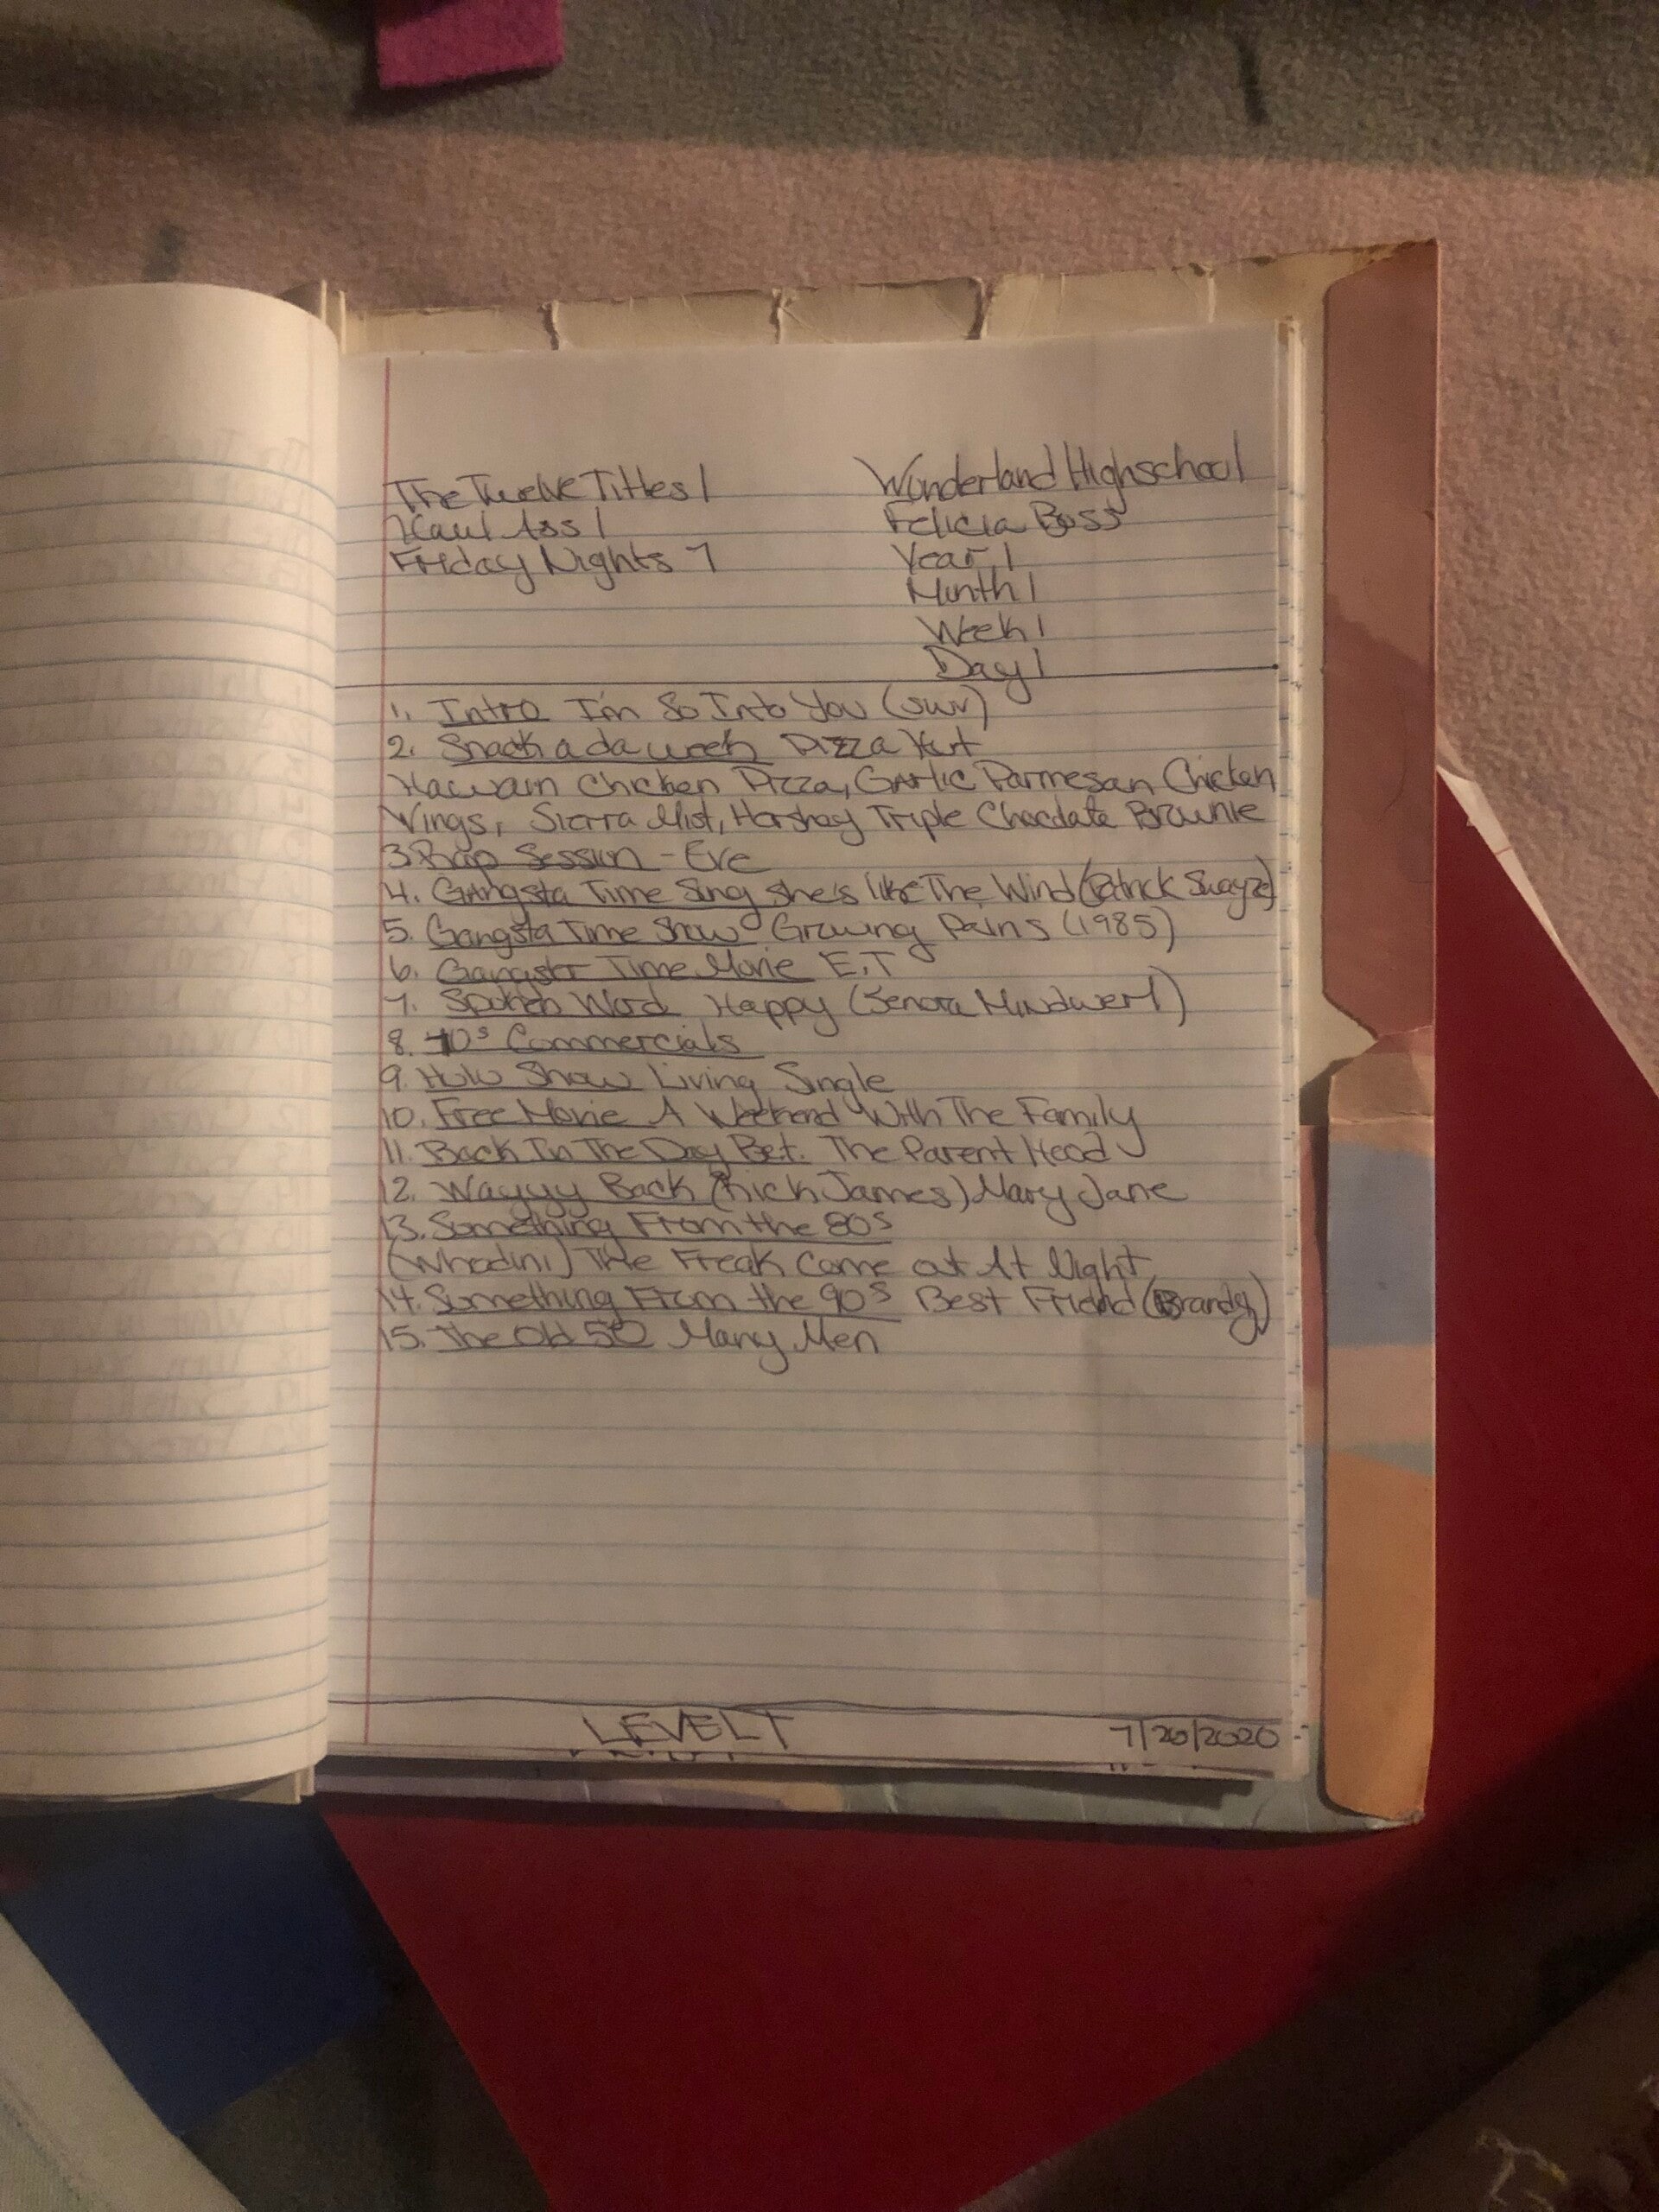 The Twelve Titles 1
Haul Ass 1
Friday Nights 7
Wonderland Highschool
Felicia Boss
Year 1
Month 1
Week 1
Day 1
1. Intro I'm So Into You (SWV)
2. Snack a da week Pizza Hut
Hawain Chicken Pizza, Garlic Parmesan Chicken
Wings, Sierra Mist, Hershey Triple Chocdate Brownie
3. Rap Session - Eve
4. Gangsta Time Song She's like The Wind (Patrick Swayze)
5. Gangsta Time Show Growing Pains (1985)
6. Gangster Time Movie E.T
7. Spoken Word Happy (Senora
8. 70s Commercials
9. Hulu Show Living Single
10. Free Movie A Weekend With The Family
11. Back In The Day Bet. The Parent Hood
12. Wayyy Back (Rick James) Mary Jane
13. Something From the 80s
(Whodini) The Freak Come out At Night
14. Something From the 90s Best Friend (Brandy)
15. The Old 50 Many Men
7/20/2020